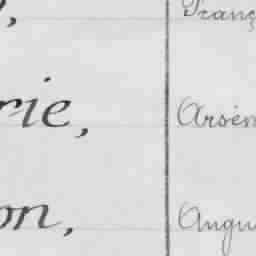 , Franç
rie, Arsèn
on, Augu